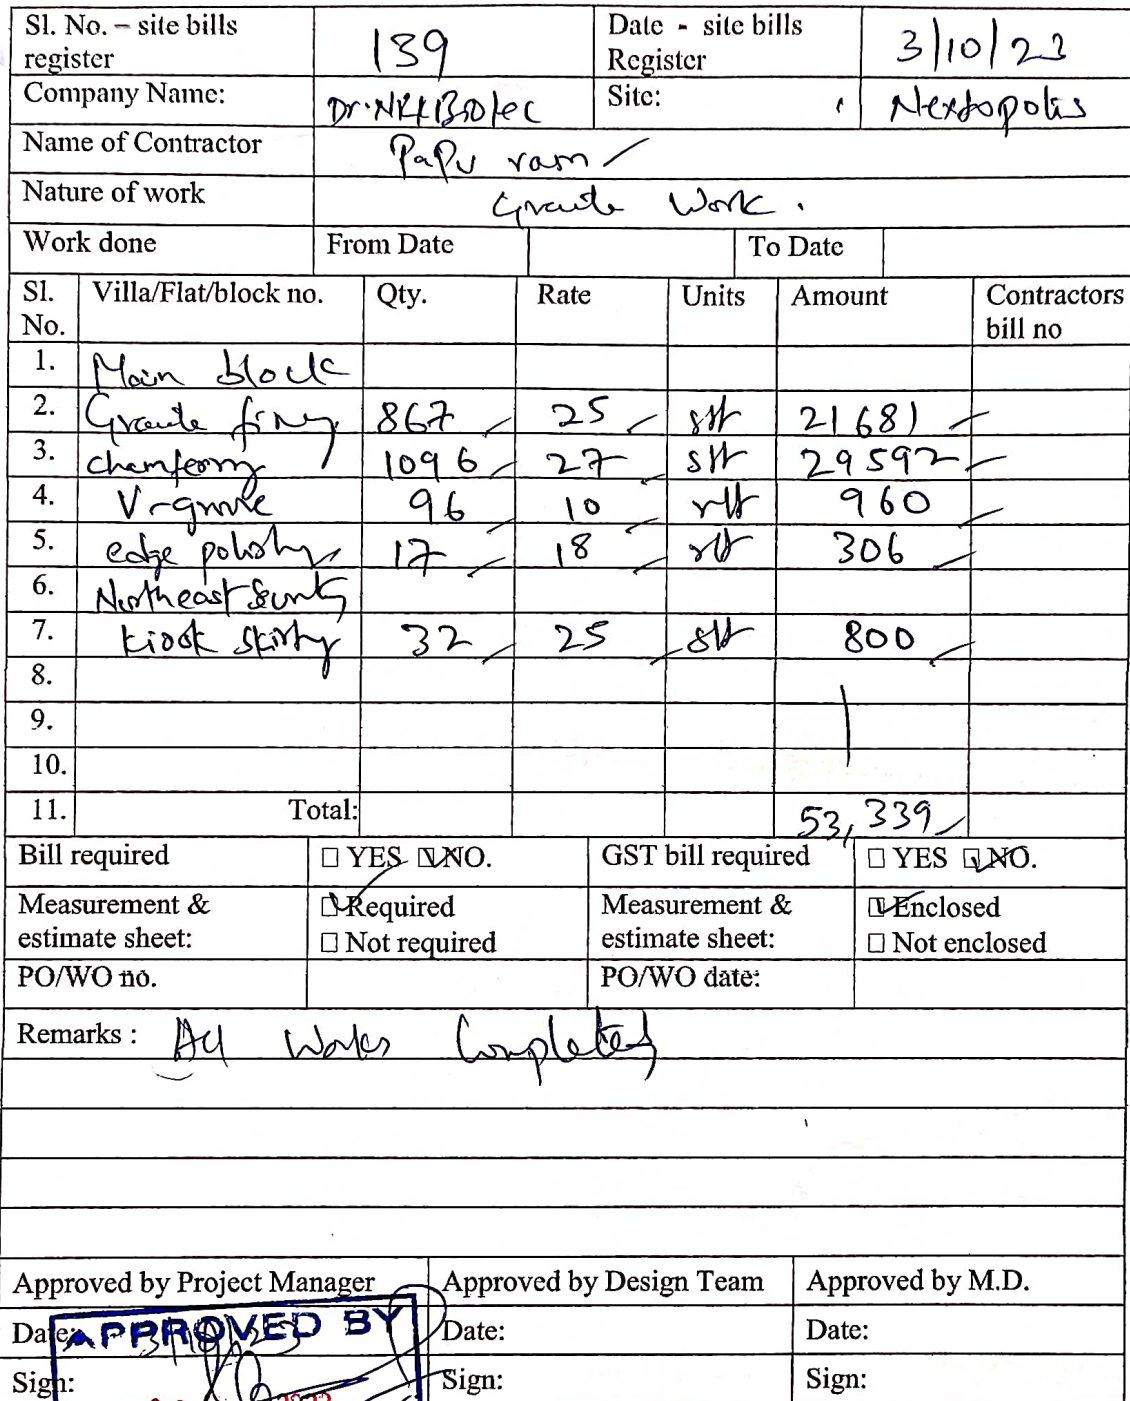 Sl. No. – site bills register 139 Date - site bills Register 3/10/23
Company Name: Dr. NRK Biotec Site: Nextopolis
Name of Contractor PaPu ram
Nature of work Granite Work.
Work done From Date To Date
Sl. No. Villa/Flat/block no. Qty. Rate Units Amount Contractors bill no
1. Main block
2. Granite fixing 867 25 sft 21681
3. chamfering 1096 27 sft 29592
4. V-groove 96 10 rft 960
5. edge polishing 17 18 rft 306
6. Northeast Security
7. kiosk skirting 32 25 sft 800
8.
9.
10.
11. Total: 53,339
Bill required ☐ YES ☑ NO. GST bill required ☐ YES ☑ NO.
Measurement & estimate sheet: ☑ Required ☐ Not required Measurement & estimate sheet: ☑ Enclosed ☐ Not enclosed
PO/WO no. PO/WO date:
Remarks : All Works Completed
Approved by Project Manager Approved by Design Team Approved by M.D.
Date: APPROVED BY Date: Date:
Sign: Sign: Sign: